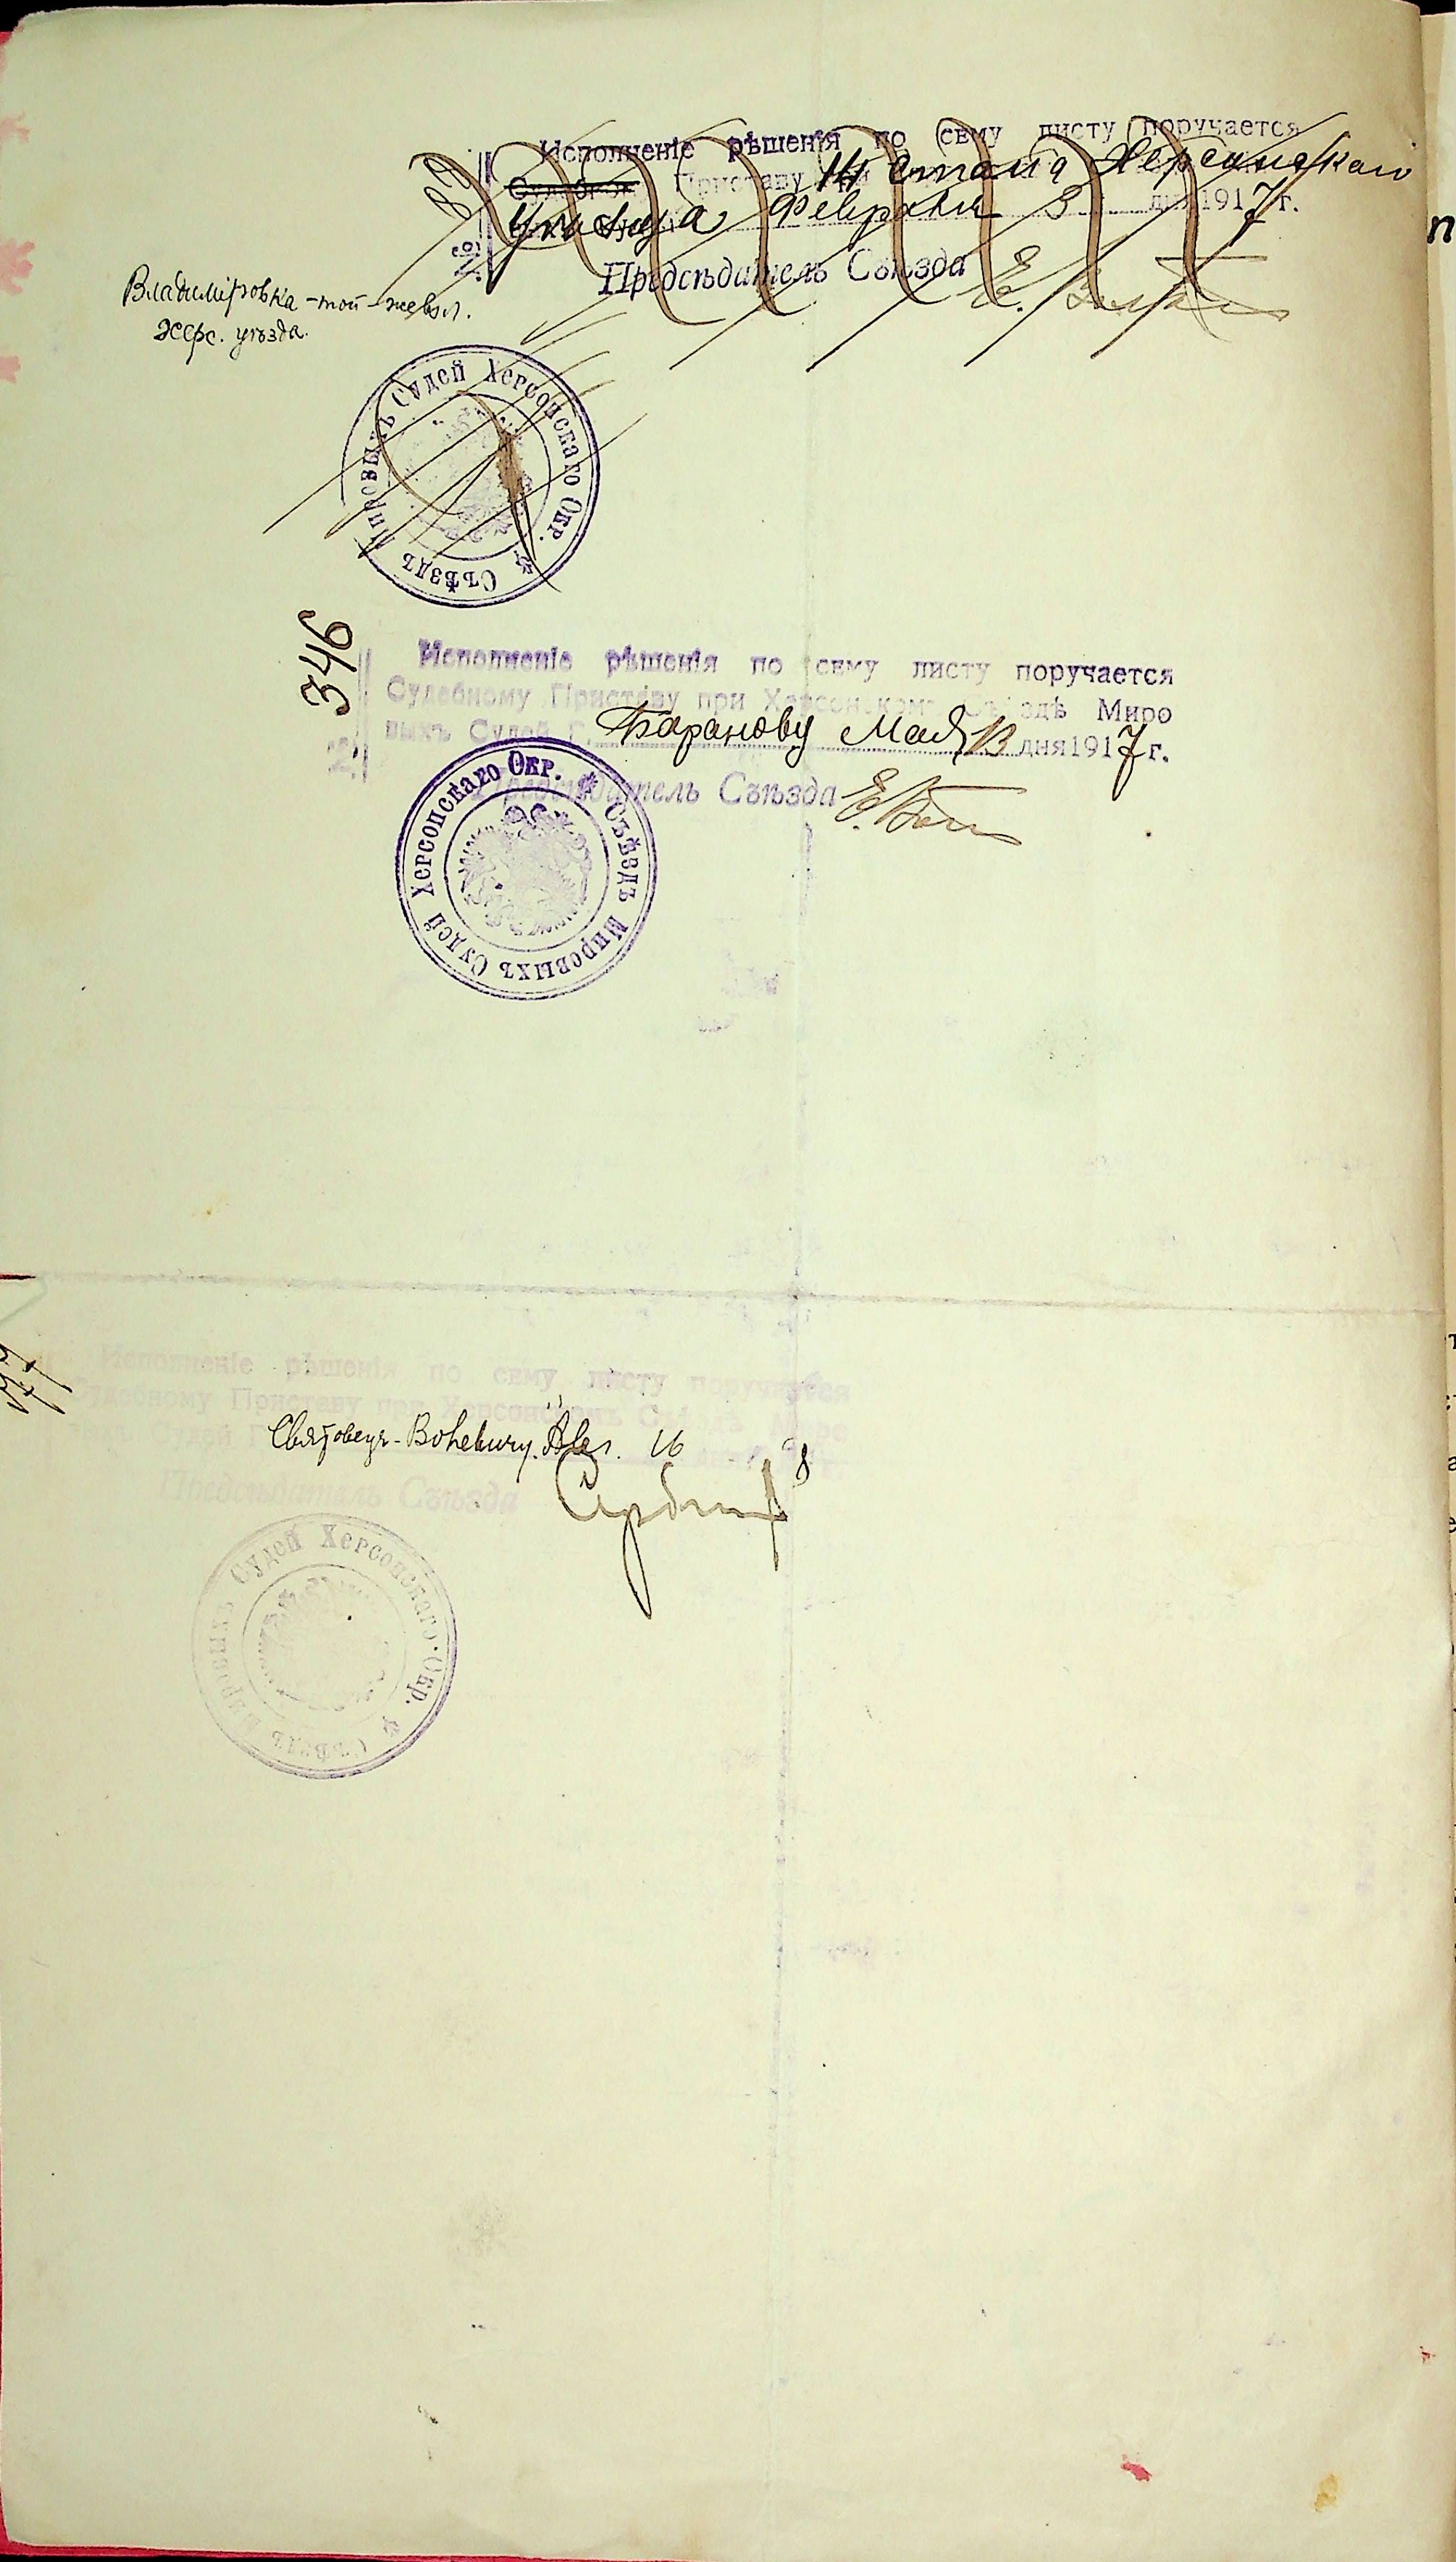 Исполненіе рѣшенія по сему листу поручается
Судебному Приставу при 14 Стана Херсонскаго
Уѣзда Февраля 3 дня 1917 г.
№
Предсѣдатель Съѣзда
Владиміровка - той-же вол.
Херс. уѣзда.
Съѣздъ Мировыхъ Судей Херсонскаго Окр.
346
Исполненіе рѣшенія по сему листу поручается
Судебному Приставу при Херсонскомъ Съѣздѣ Миро
выхъ Судей Г. Баранову Мая 13 дня 1917 г.
№
Предсѣдатель Съѣзда
Съѣздъ Мировыхъ Судей Херсонскаго Окр.
Исполненіе рѣшенія по сему листу поручается
Судебному Приставу при Херсонскомъ Съѣздѣ Миро
Судей Г. 16 8 г.
Предсѣдатель Съѣзда
Съѣздъ Мировыхъ Судей Херсонскаго Окр.